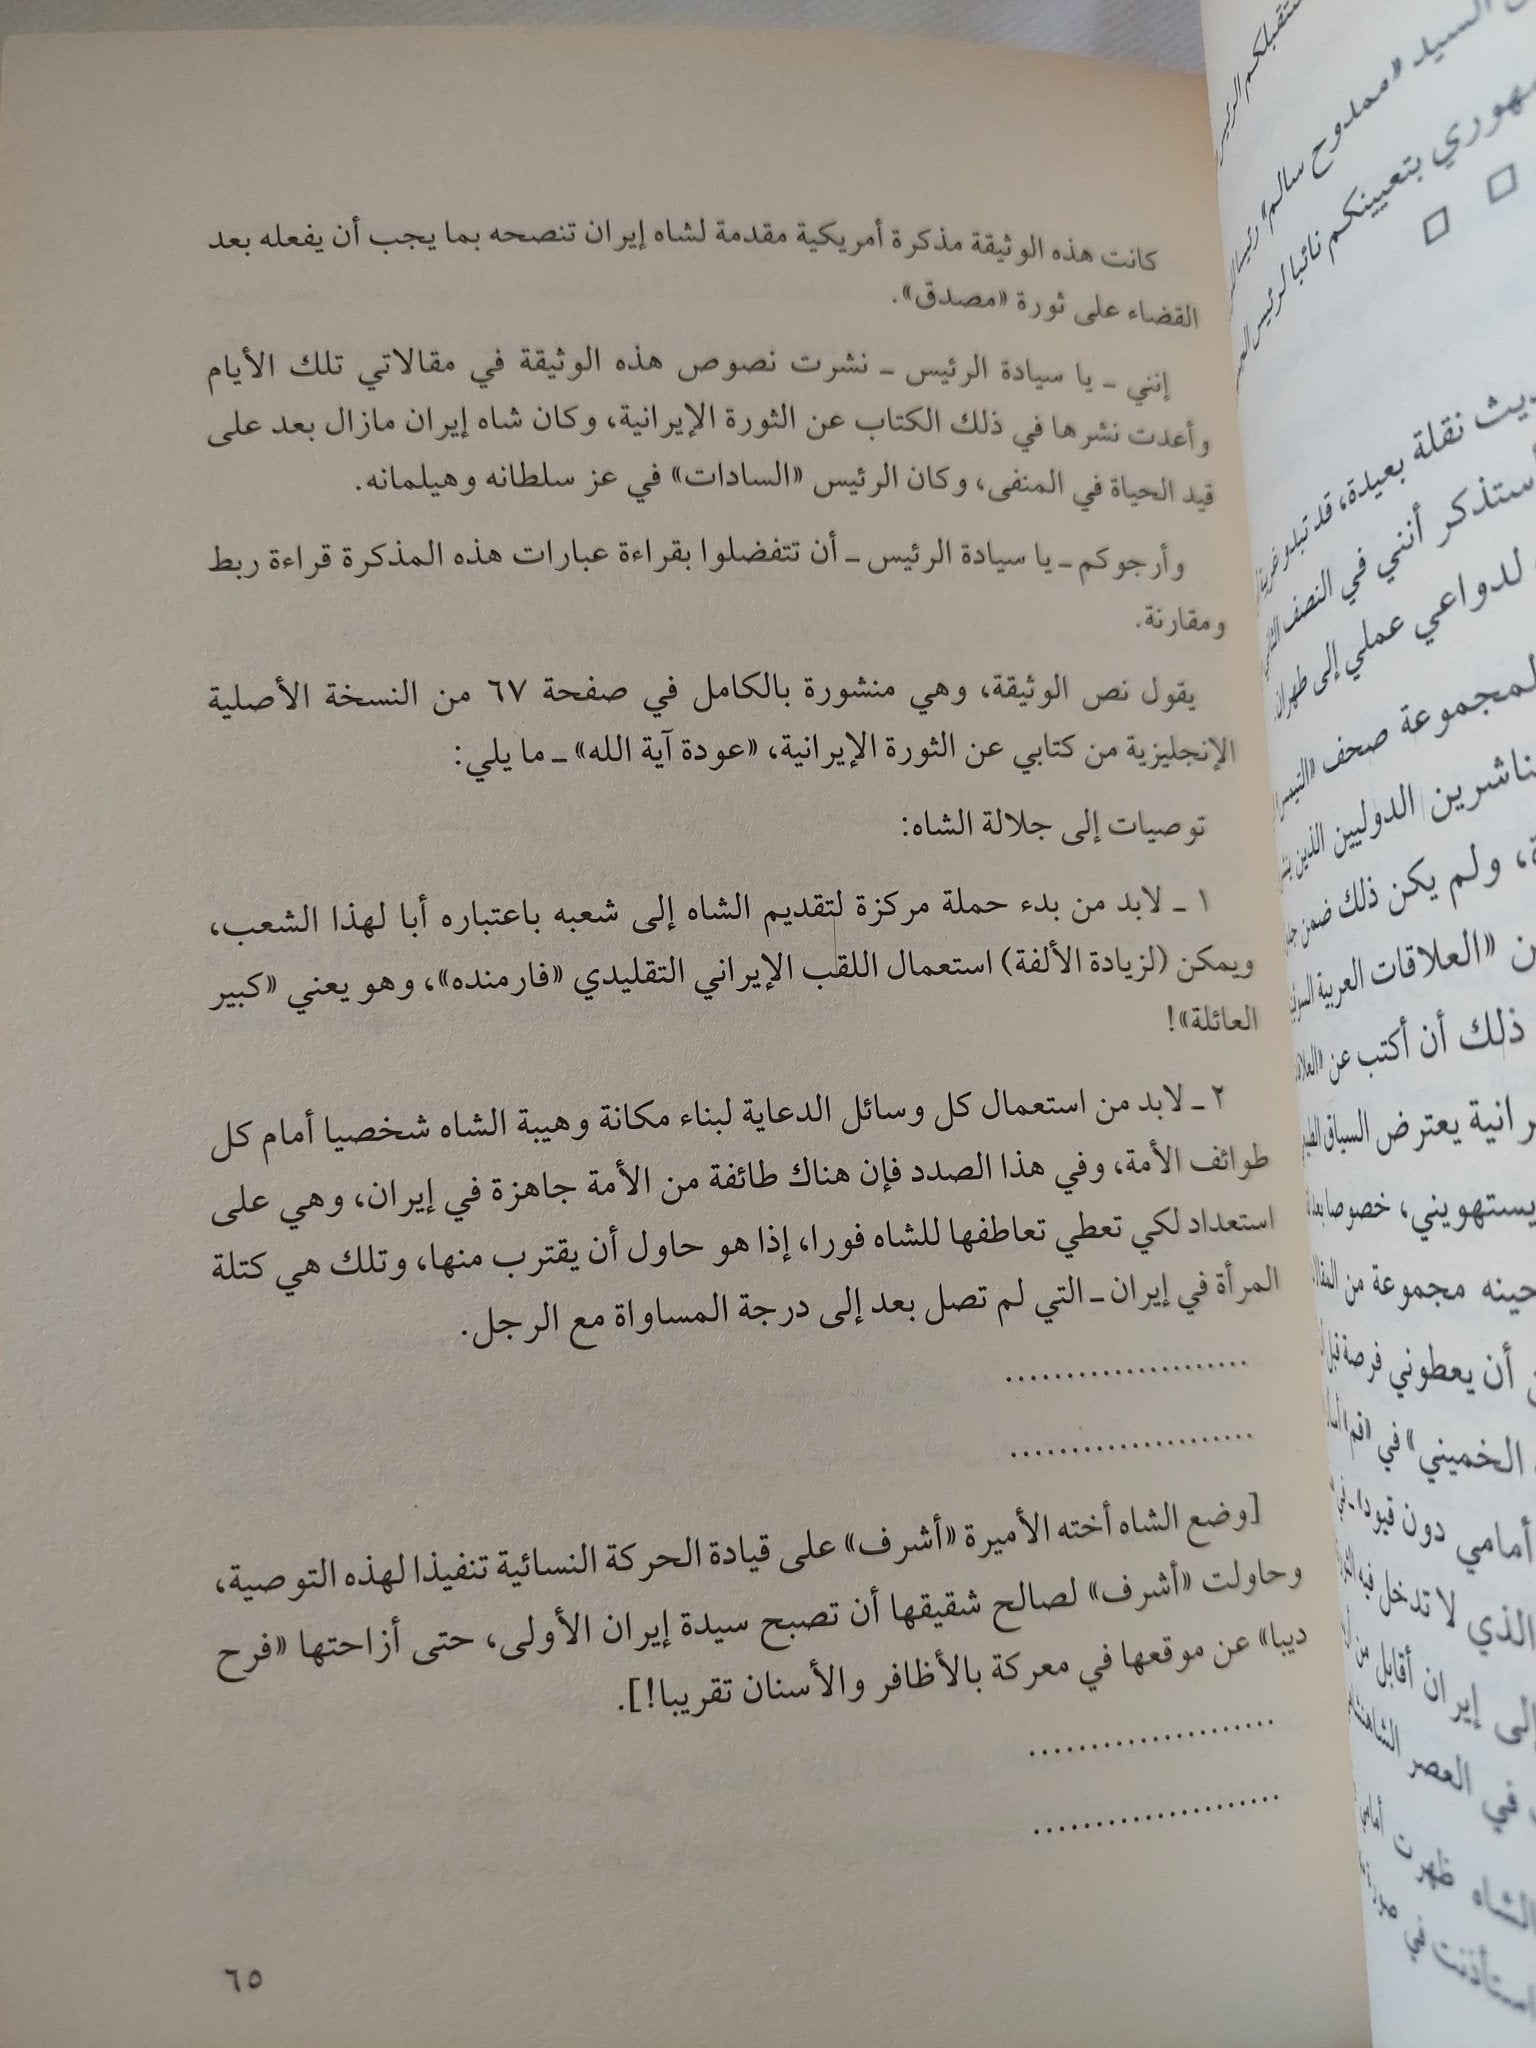 كانت هذه الوثيقة مذكرة أمريكية مقدمة لشاه إيران تنصحه بما يجب أن يفعله بعد
القضاء على ثورة «مصدق».
إنني ـ يا سيادة الرئيس ـ نشرت نصوص هذه الوثيقة في مقالاتي تلك الأيام
وأعدت نشرها في ذلك الكتاب عن الثورة الإيرانية، وكان شاه إيران مازال بعد على
قيد الحياة في المنفى، وكان الرئيس «السادات» في عز سلطانه وهيلمانه.
وأرجوكم ـ يا سيادة الرئيس ـ أن تتفضلوا بقراءة عبارات هذه المذكرة قراءة ربط
ومقارنة.
يقول نص الوثيقة، وهي منشورة بالكامل في صفحة ٦٧ من النسخة الأصلية
الإنجليزية من كتابي عن الثورة الإيرانية، «عودة آية الله» ـ ما يلي:
توصيات إلى جلالة الشاه:
١ ـ لابد من بدء حملة مركزة لتقديم الشاه إلى شعبه باعتباره أبا لهذا الشعب،
ويمكن (لزيادة الألفة) استعمال اللقب الإيراني التقليدي «فارمنده»، وهو يعني «كبير
العائلة»!
٢ ـ لابد من استعمال كل وسائل الدعاية لبناء مكانة وهيبة الشاه شخصيا أمام كل
طوائف الأمة، وفي هذا الصدد فإن هناك طائفة من الأمة جاهزة في إيران، وهي على
استعداد لكي تعطي تعاطفها للشاه فورا، إذا هو حاول أن يقترب منها، وتلك هي كتلة
المرأة في إيران ـ التي لم تصل بعد إلى درجة المساواة مع الرجل.
.....................
.....................
[وضع الشاه أخته الأميرة «أشرف» على قيادة الحركة النسائية تنفيذا لهذه التوصية،
وحاولت «أشرف» لصالح شقيقها أن تصبح سيدة إيران الأولى، حتى أزاحتها «فرح
ديبا» عن موقعها في معركة بالأظافر والأسنان تقريبا!].
.....................
.....................
٦٥
السيد «ممدوح سالم»
بتعيينكم نائبا لرئيس
نقلة بعيدة، قد تبدو
أنني في النصف
لدواعي عملي إلى
صحف
الدوليين الذين
ولم يكن ذلك ضمن
«العلاقات العربية
ذلك أن أكتب عن
يعترض السياق
يستهويني، خصوصا
مجموعة من
أن يعطوني فرصة قبل
الخميني» في «قم»
أمامي دون قيود
الذي لا تدخل فيه
إيران أقابل من
في العصر